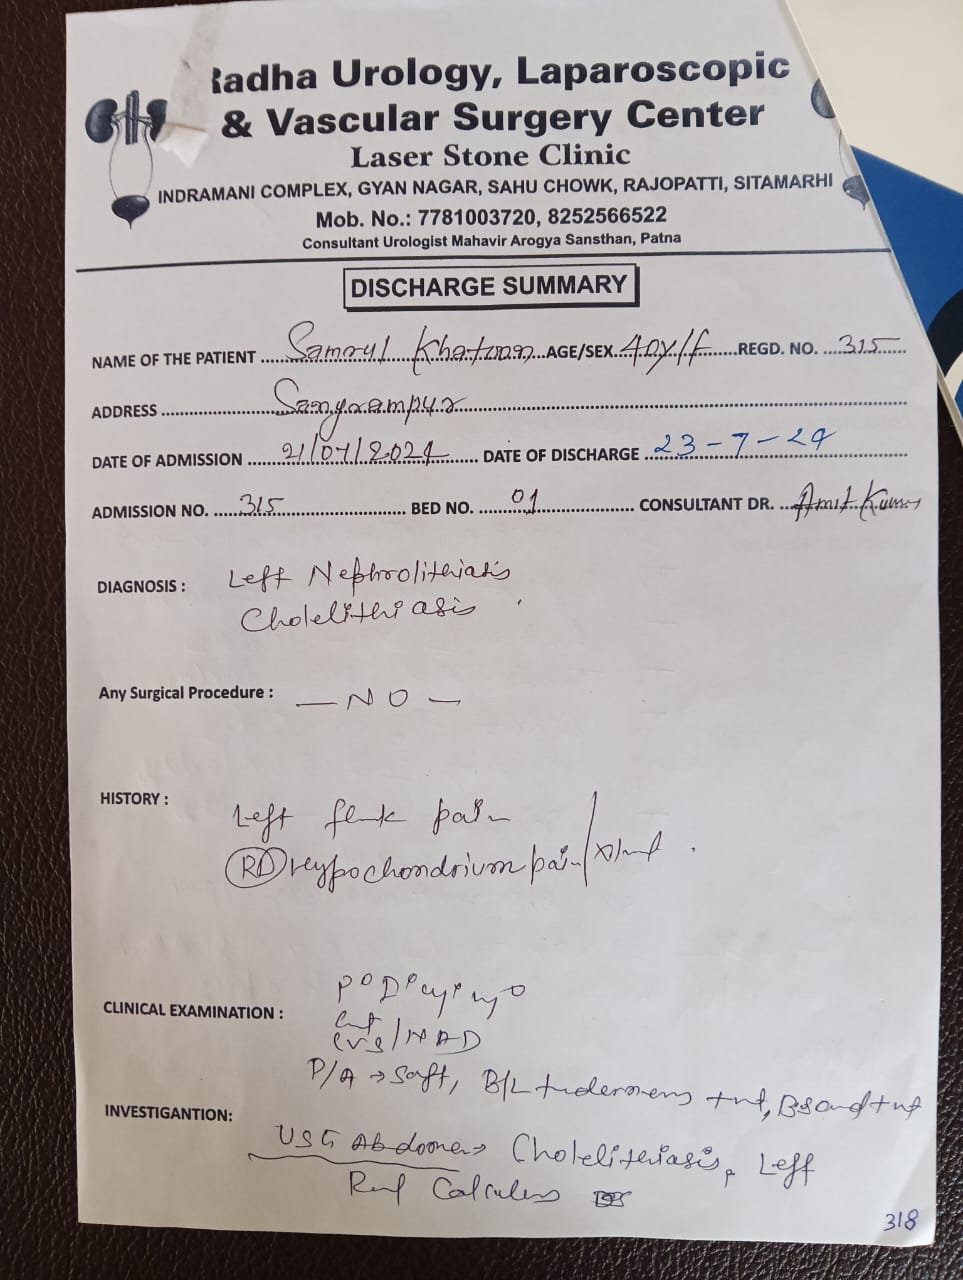 Radha Urology, Laparoscopic
& Vascular Surgery Center
Laser Stone Clinic
INDRAMANI COMPLEX, GYAN NAGAR, SAHU CHOWK, RAJOPATTI, SITAMARHI
Mob. No.: 7781003720, 8252566522
Consultant Urologist Mahavir Arogya Sansthan, Patna
DISCHARGE SUMMARY
NAME OF THE PATIENT Samrul Khatoon AGE/SEX. 40y/f REGD. NO. 315
ADDRESS Sangrampur
DATE OF ADMISSION 21/07/2024 DATE OF DISCHARGE 23-7-24
ADMISSION NO. 315 BED NO. 01 CONSULTANT DR. Amit Kumar
DIAGNOSIS : Left Nephrolithiasis
Cholelithiasis
Any Surgical Procedure : - NO -
HISTORY :
Left flank pain
(RT) hypochondrium pain
CLINICAL EXAMINATION :
CVS/NAD
P/A → Soft, B/L tenderness
INVESTIGANTION:
USG Abdomen → Cholelithiasis, Left
Renal Calculus
318